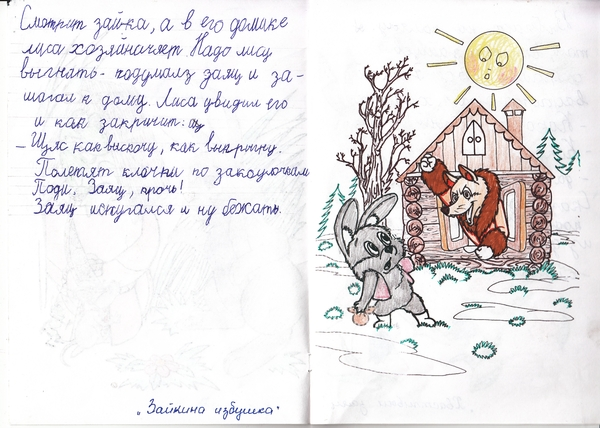 Смотрит зайка, а в его домике
лиса хозяйначает. Надо лису
выгнать - подумалз заяц и за-
шагал к дому. Лиса увидил его
и как закричит: ац
- Щяс как вискочу, как выпрыгну.
Полетят клочки по закоулочкам
Поди, Заяц, прочь!
Заяц испугался и ну бежать.
„Зайкина избушка"